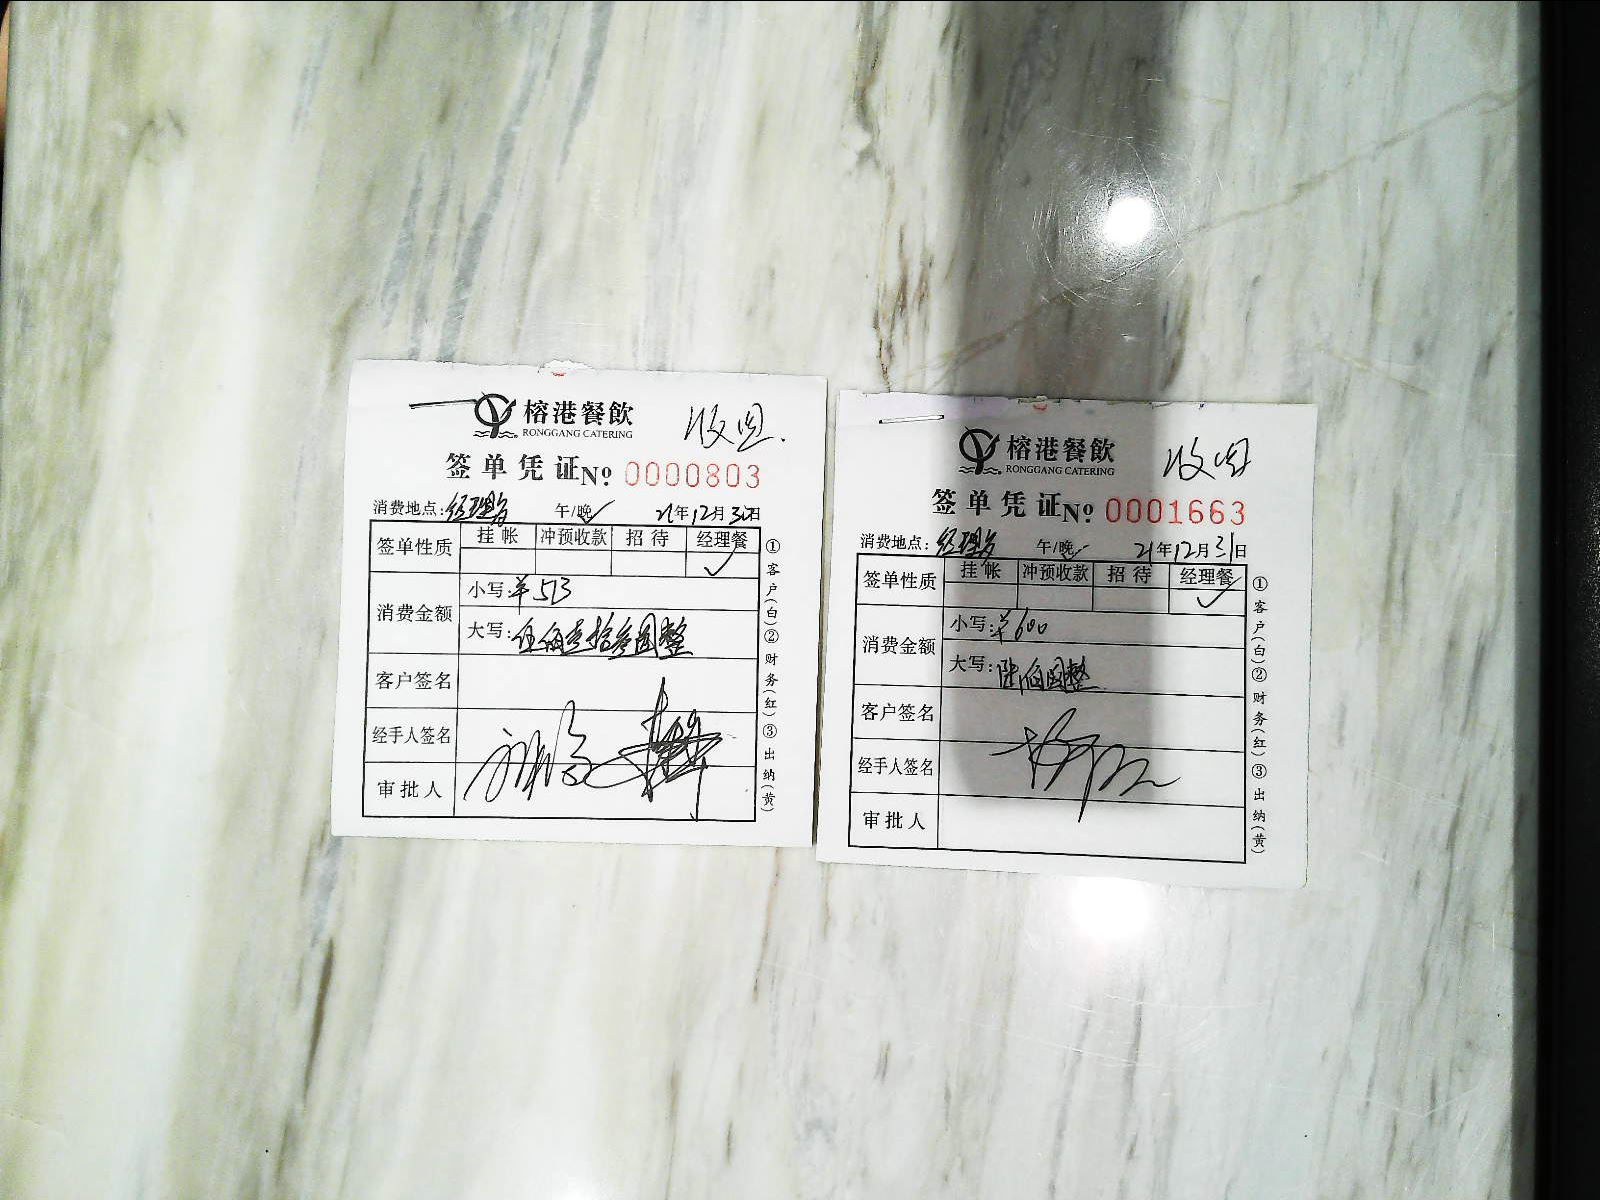 榕港餐飲
RONGGANG CATERING
收回.
签单凭证No. 0000803
消费地点: 经理房 午/晚 21年12月31日
签单性质 挂帐 冲预收款 招待 经理餐
消费金额
小写: ¥513
大写: 伍佰壹拾叁圆整
客户签名
经手人签名
审批人
①客户(白)②财务(红)③出纳(黄)
榕港餐飲
RONGGANG CATERING
收回
签单凭证No. 0001663
消费地点: 经理房 午/晚 21年12月31日
签单性质 挂帐 冲预收款 招待 经理餐
消费金额
小写: ¥600
大写: 陆佰圆整
客户签名
经手人签名
审批人
①客户(白)②财务(红)③出纳(黄)